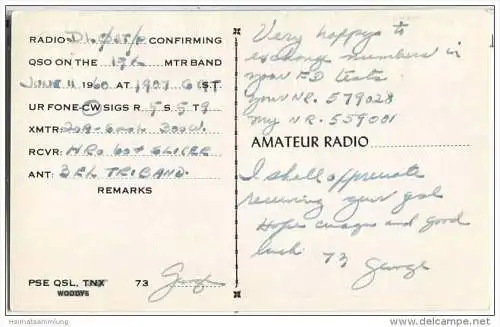 RADIO CONFIRMING
QSO ON THE 15 MTR BAND
JUNE 11 1960 AT 1907 S.T.
UR FONE-CW SIGS R 5 S 7 T 9
XMTR: 300W.
RCVR: HRO 60 + SLICER
ANT: 3 EL TRIBAND.
REMARKS
PSE QSL, TNX 73 George
WOODYS
Very happy to
exchange numbers in
your FD tests
your NR. 579028
my NR. 559001
AMATEUR RADIO
I shall appreciate
receiving your qsl
Hope cuagn and good
luck 73
George
Heimatsammlung